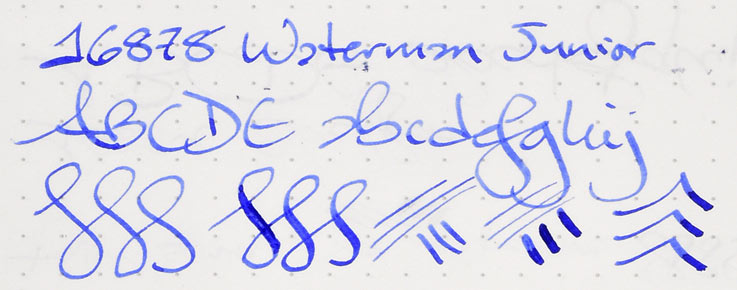 16878 Waterman Junior
ABCDE abcdefghij